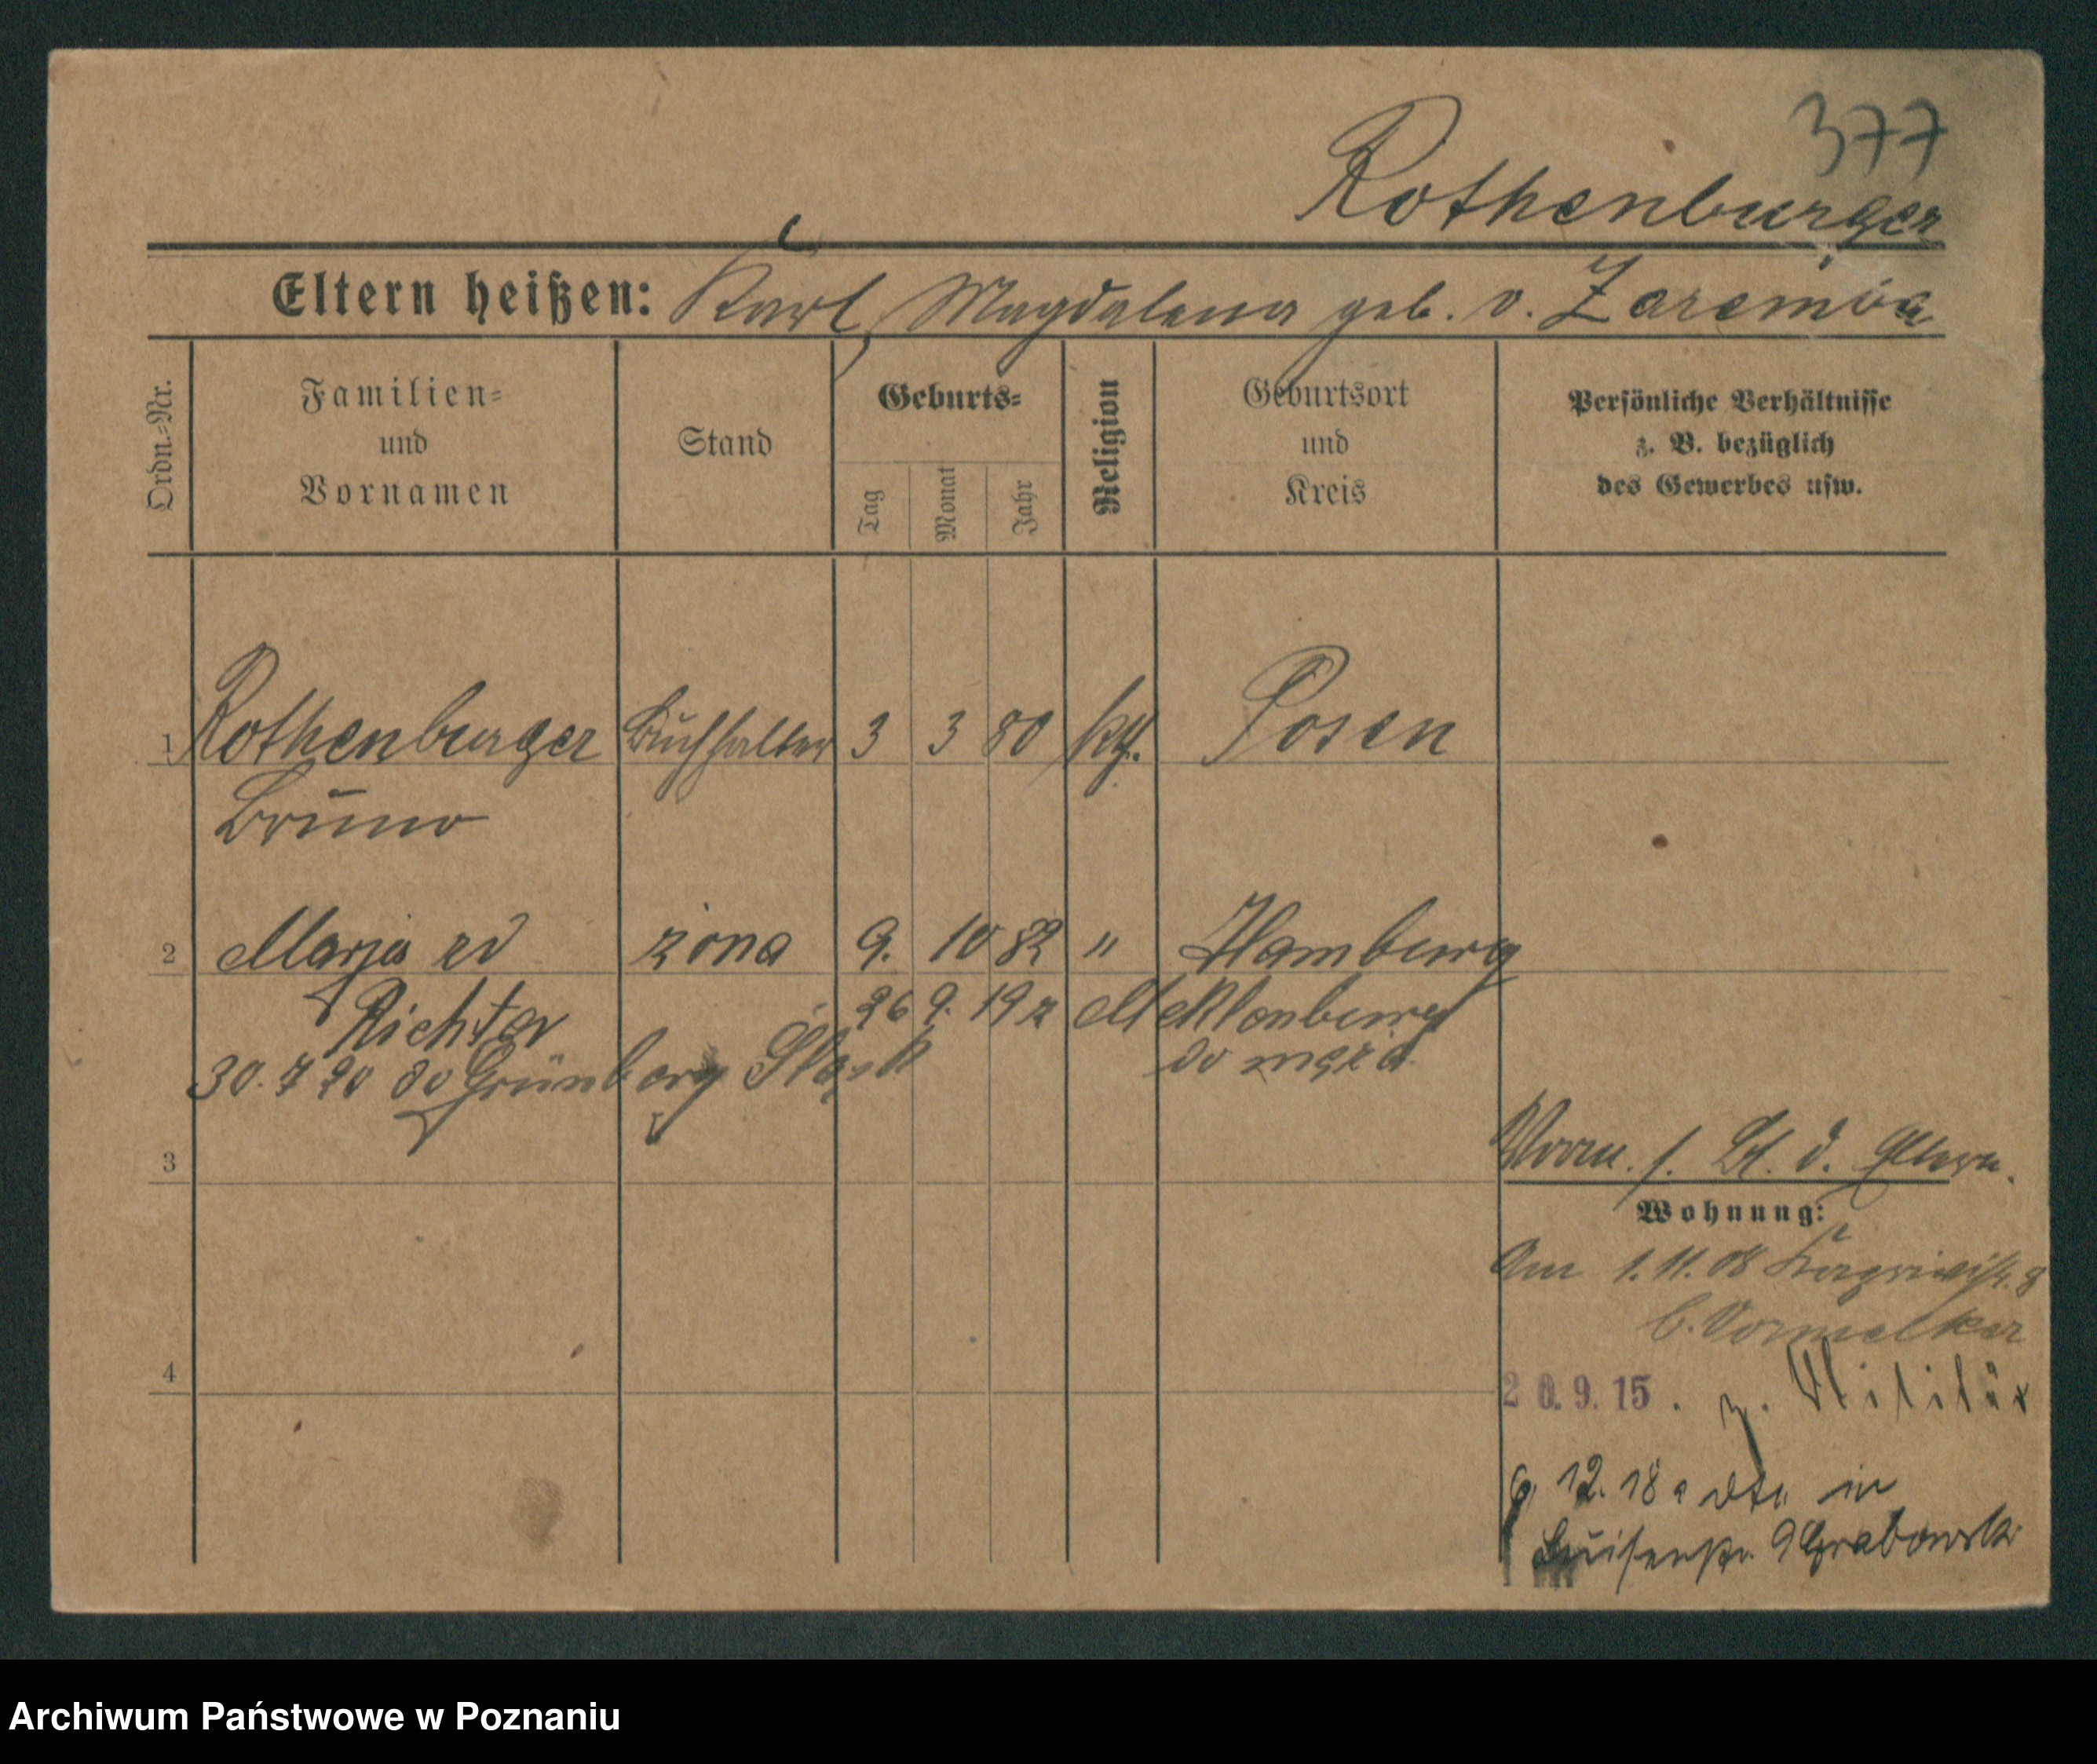 377
Rothenburger
Eltern heißen: Karl, Magdalena geb. v. Zaremba
Ordn.=Nr.
Familien=
und
Vornamen
Stand
Geburts=
Tag
Monat
Jahr
Religion
Geburtsort
und
Kreis
Persönliche Verhältnisse
z. B. bezüglich
des Gewerbes usw.
1 Rothenburger Buchhalter 3 3 80 kth. Posen
Bruno
2 Marja zd żona 9. 10 82 " Hamburg
Richter 26 9. 19 z Meklenburg
do męża
30. 7 20 do Grünberg Śląsk
3
Vorm. s. Bl. d. Eltern.
Wohnung:
Am 1.11.08 8
b.
4
20.9.15. z. Militär
12.18 in
Luisenstr. 9 Grabowski
Archiwum Państwowe w Poznaniu